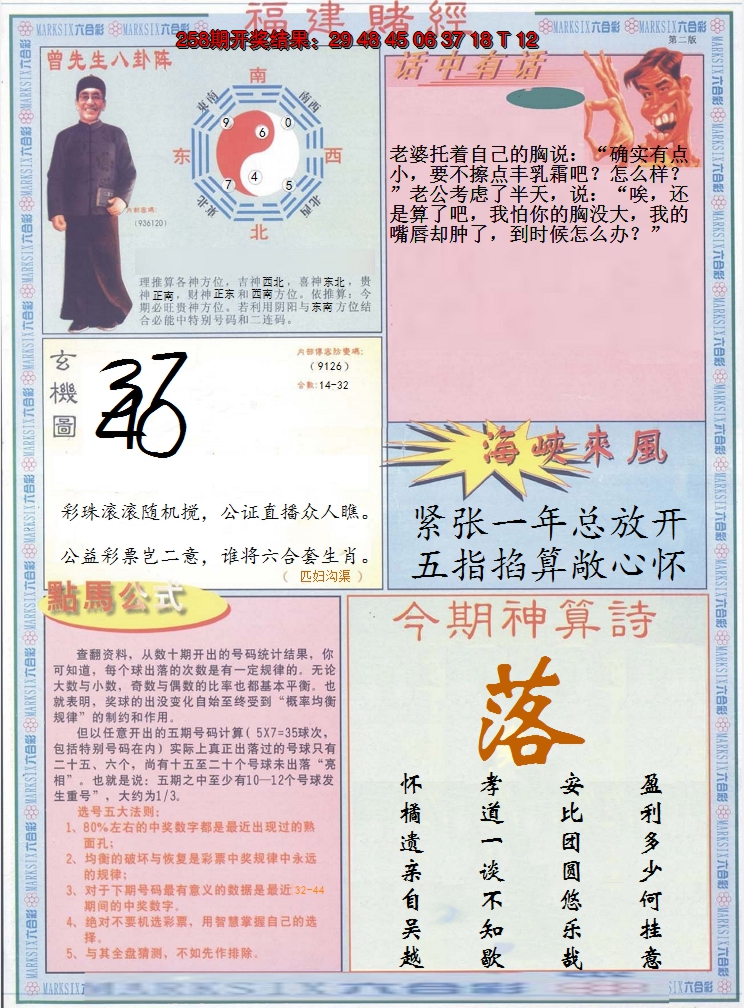 福建賭經
258期开奖结果：29 48 45 06 37 18 T 12
第二版
MARKSIX六合彩
曾先生八卦阵
南
东南
南西
9
6
0
东
西
7
4
5
東北
北西
北
（936120）
理推算各神方位，吉神西北，喜神东北，贵
神正南，财神正东和西南方位。依推算：今
期必旺贵神方位。若利用阴阳与东南方位结
合必能中特别号码和二连码。
话中有话
老婆托着自己的胸说：“确实有点
小，要不擦点丰乳霜吧？怎么样？
”老公考虑了半天，说：“唉，还
是算了吧，我怕你的胸没大，我的
嘴唇却肿了，到时候怎么办？”
玄機圖
（9126）
合数:14-32
彩珠滚滚随机搅，公证直播众人瞧。
公益彩票岂二意，谁将六合套生肖。
（ 匹妇沟渠 ）
海峽來風
紧张一年总放开
五指掐算敞心怀
點馬公式
查翻资料，从数十期开出的号码统计结果，你
可知道，每个球出落的次数是有一定规律的。无论
大数与小数，奇数与偶数的比率也都基本平衡。也
就表明，奖球的出没变化自始至终受到“概率均衡
规律”的制约和作用。
但以任意开出的五期号码计算( 5X7=35球次，
包括特别号码在内) 实际上真正出落过的号球只有
二十五、六个，尚有十五至二十个号球未出落“亮
相”。也就是说：五期之中至少有10—12个号球发
生重号”，大约为1/3。
选号五大法则：
1、80%左右的中奖数字都是最近出现过的熟
面孔；
2、均衡的破坏与恢复是彩票中奖规律中永远
的规律；
3、对于下期号码最有意义的数据是最近 32-44
期间的中奖数字。
4、绝对不要机选彩票，用智慧掌握自己的选
择。
5、与其全盘猜测，不如先作排除。
今期神算詩
落
盈利多少何挂意
安比团圆悠乐哉
孝道一谈不知歇
怀橘遗亲自吴越